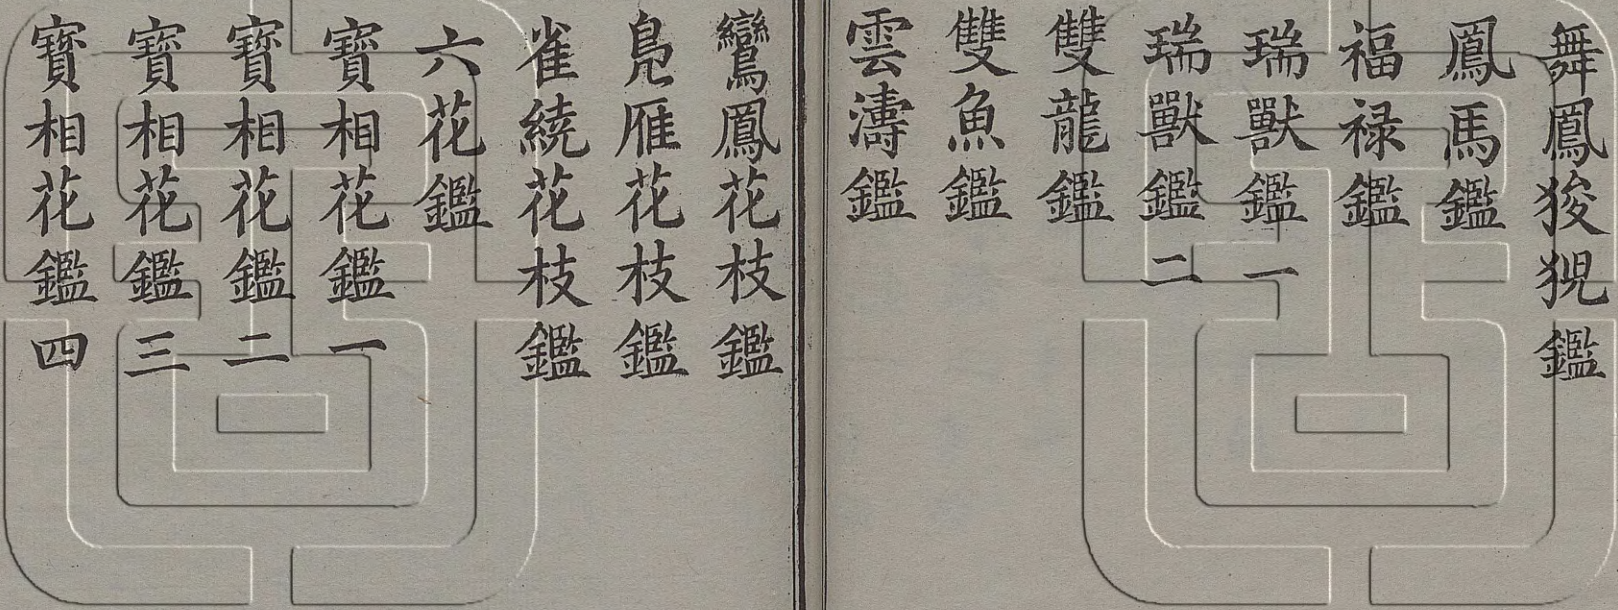 舞鳳狻猊鑑
鳳馬鑑
福禄鑑
瑞獸鑑一
瑞獸鑑二
雙龍鑑
雙魚鑑
雲濤鑑
鸞鳳花枝鑑
鳧雁花枝鑑
雀繞花枝鑑
六花鑑
寳相花鑑一
寳相花鑑二
寳相花鑑三
寳相花鑑四